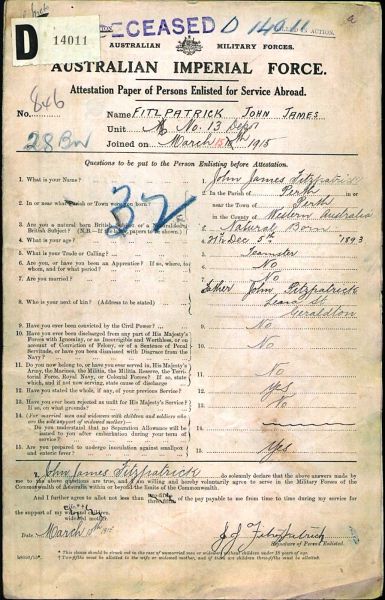 DECEASED D 14011
D 14011
AUSTRALIAN MILITARY FORCES.
AUSTRALIAN IMPERIAL FORCE.
Attestation Paper of Persons Enlisted for Service Abroad.
846
No. Name FITZPATRICK JOHN JAMES
Unit No. 13 Depot
28 Bn Joined on March 1915
Questions to be put to the Person Enlisting before Attestation.
1. What is your Name? 1. John James Fitzpatrick
2. In or near what Parish or Town were you born? 2. In the Parish of Perth in or
near the Town of Perth
in the County of Western Australia
32
3. Are you a natural born British Subject or a Naturalized
British Subject? (N.B.— papers to be shown.) 3. Natural Born
4. What is your age? 4. Dec 5th 1893
5. What is your Trade or Calling? 5. Teamster
6. Are you, or have you been an Apprentice? If so, where, to
whom, and for what period? 6. No
7. Are you married? 7. No
8. Who is your next of kin? (Address to be stated) 8. Father John Fitzpatrick
St
Geraldton
9. Have you ever been convicted by the Civil Power? 9. No
10. Have you ever been discharged from any part of His Majesty's
Forces with Ignominy, or as Incorrigible and Worthless, or on
account of Conviction of Felony, or of a Sentence of Penal
Servitude, or have you been dismissed with Disgrace from the
Navy? 10. No
11. Do you now belong to, or have you ever served in, His Majesty's
Army, the Marines, the Militia, the Militia Reserve, the Territorial
Force, Royal Navy, or Colonial Forces? If so, state
which, and if not now serving, state cause of discharge 11. No
12. Have you stated the whole, if any, of your previous Service? 12. Yes
13. Have you ever been rejected as unfit for His Majesty's Service?
If so, on what grounds? 13. No
14. (For married men and widowers with children and soldiers who
are the sole support of widowed mother)—
Do you understand that no Separation Allowance will be
issued to you after embarkation during your term of
service? 14.
15. Are you prepared to undergo inoculation against smallpox
and enteric fever? 15. Yes
I, John James Fitzpatrick do solemnly declare that the above answers made by
me to the above questions are true, and I am willing and hereby voluntarily agree to serve in the Military Forces of the
Commonwealth of Australia within or beyond the limits of the Commonwealth.
And I further agree to allot not less than of the pay payable to me from time to time during my service
for the support of my
widowed mother.
Date March 1915 J J Fitzpatrick
Signature of Person Enlisted.
* This clause should be struck out in the case of unmarried men or widowers without children under 18 years of age.
† Two-fifths must be allotted to the wife or widowed mother, and if there are children three-fifths must be allotted.